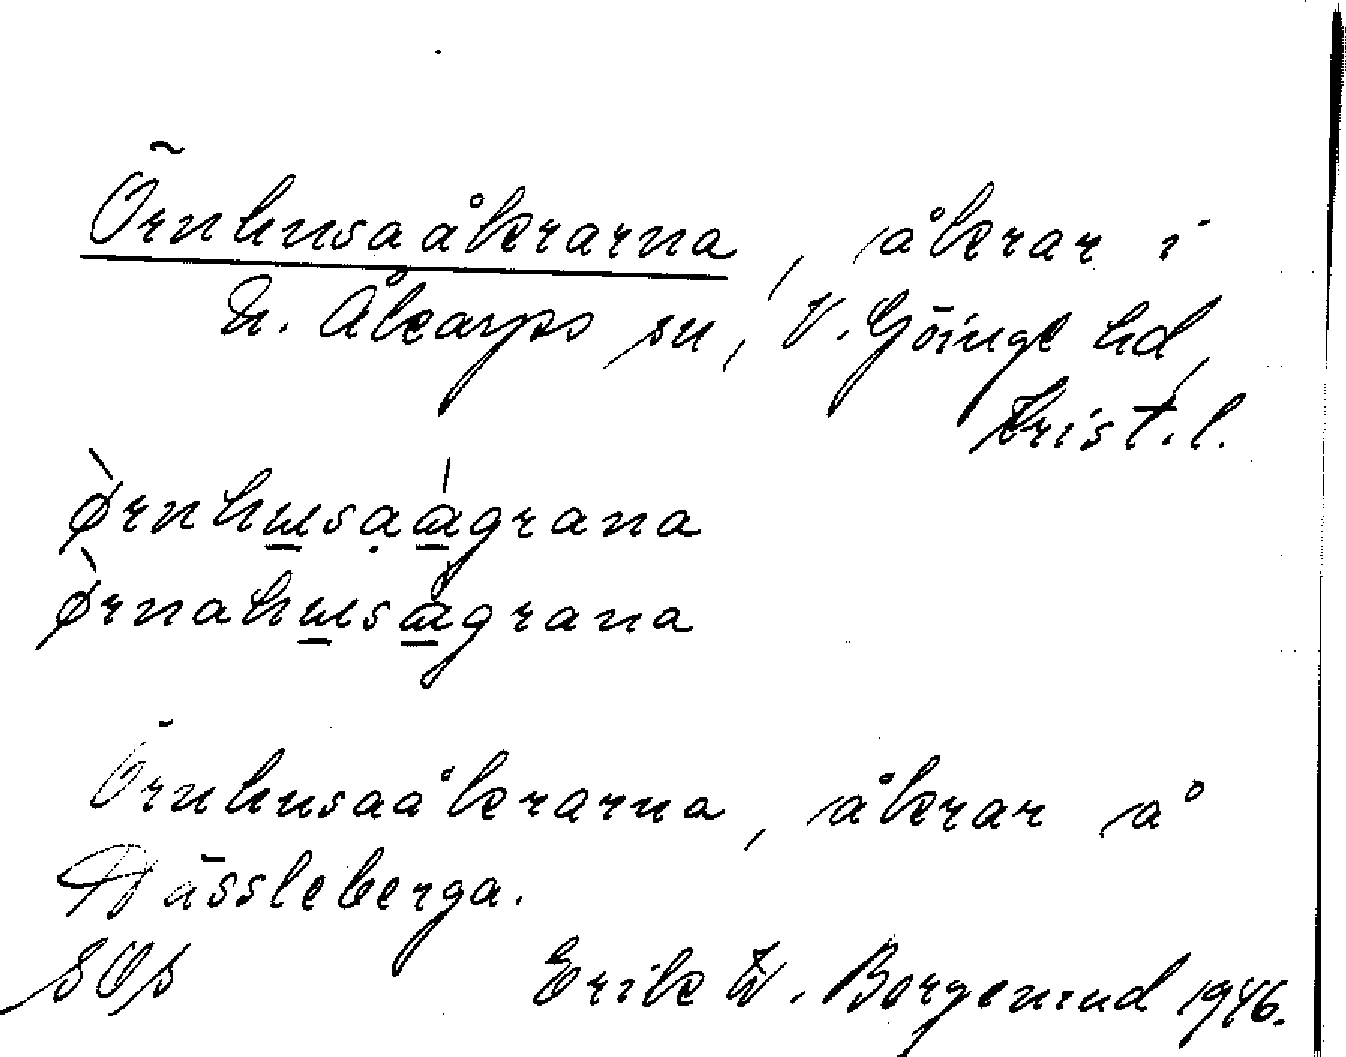 Örnhusaåkrarna, åkrar i
N. Åkarps sn, V. Göinge hd,
Krist. l.
ørnhusaagrana
ørnahusagrana
Örnhusaåkrarna, åkrar å
Hässleberga.
Erik W. Bergenund 1946.